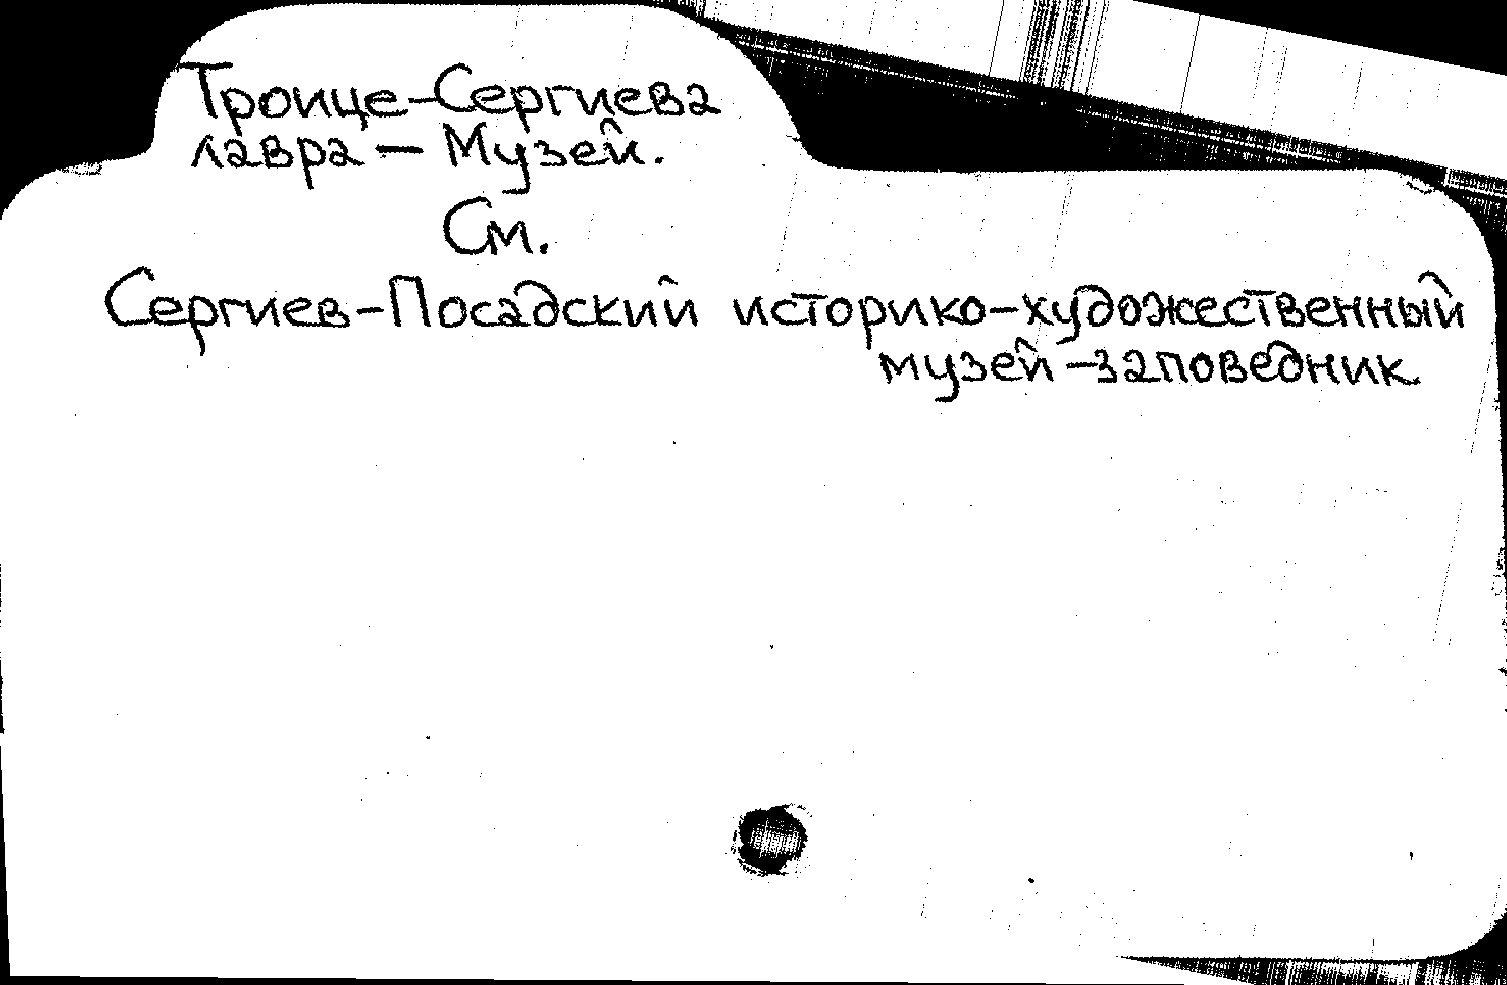 Троице-Сергиева
лавра — Музей.
См.
Сергиев-Посадский историко-художественный
музей-заповедник